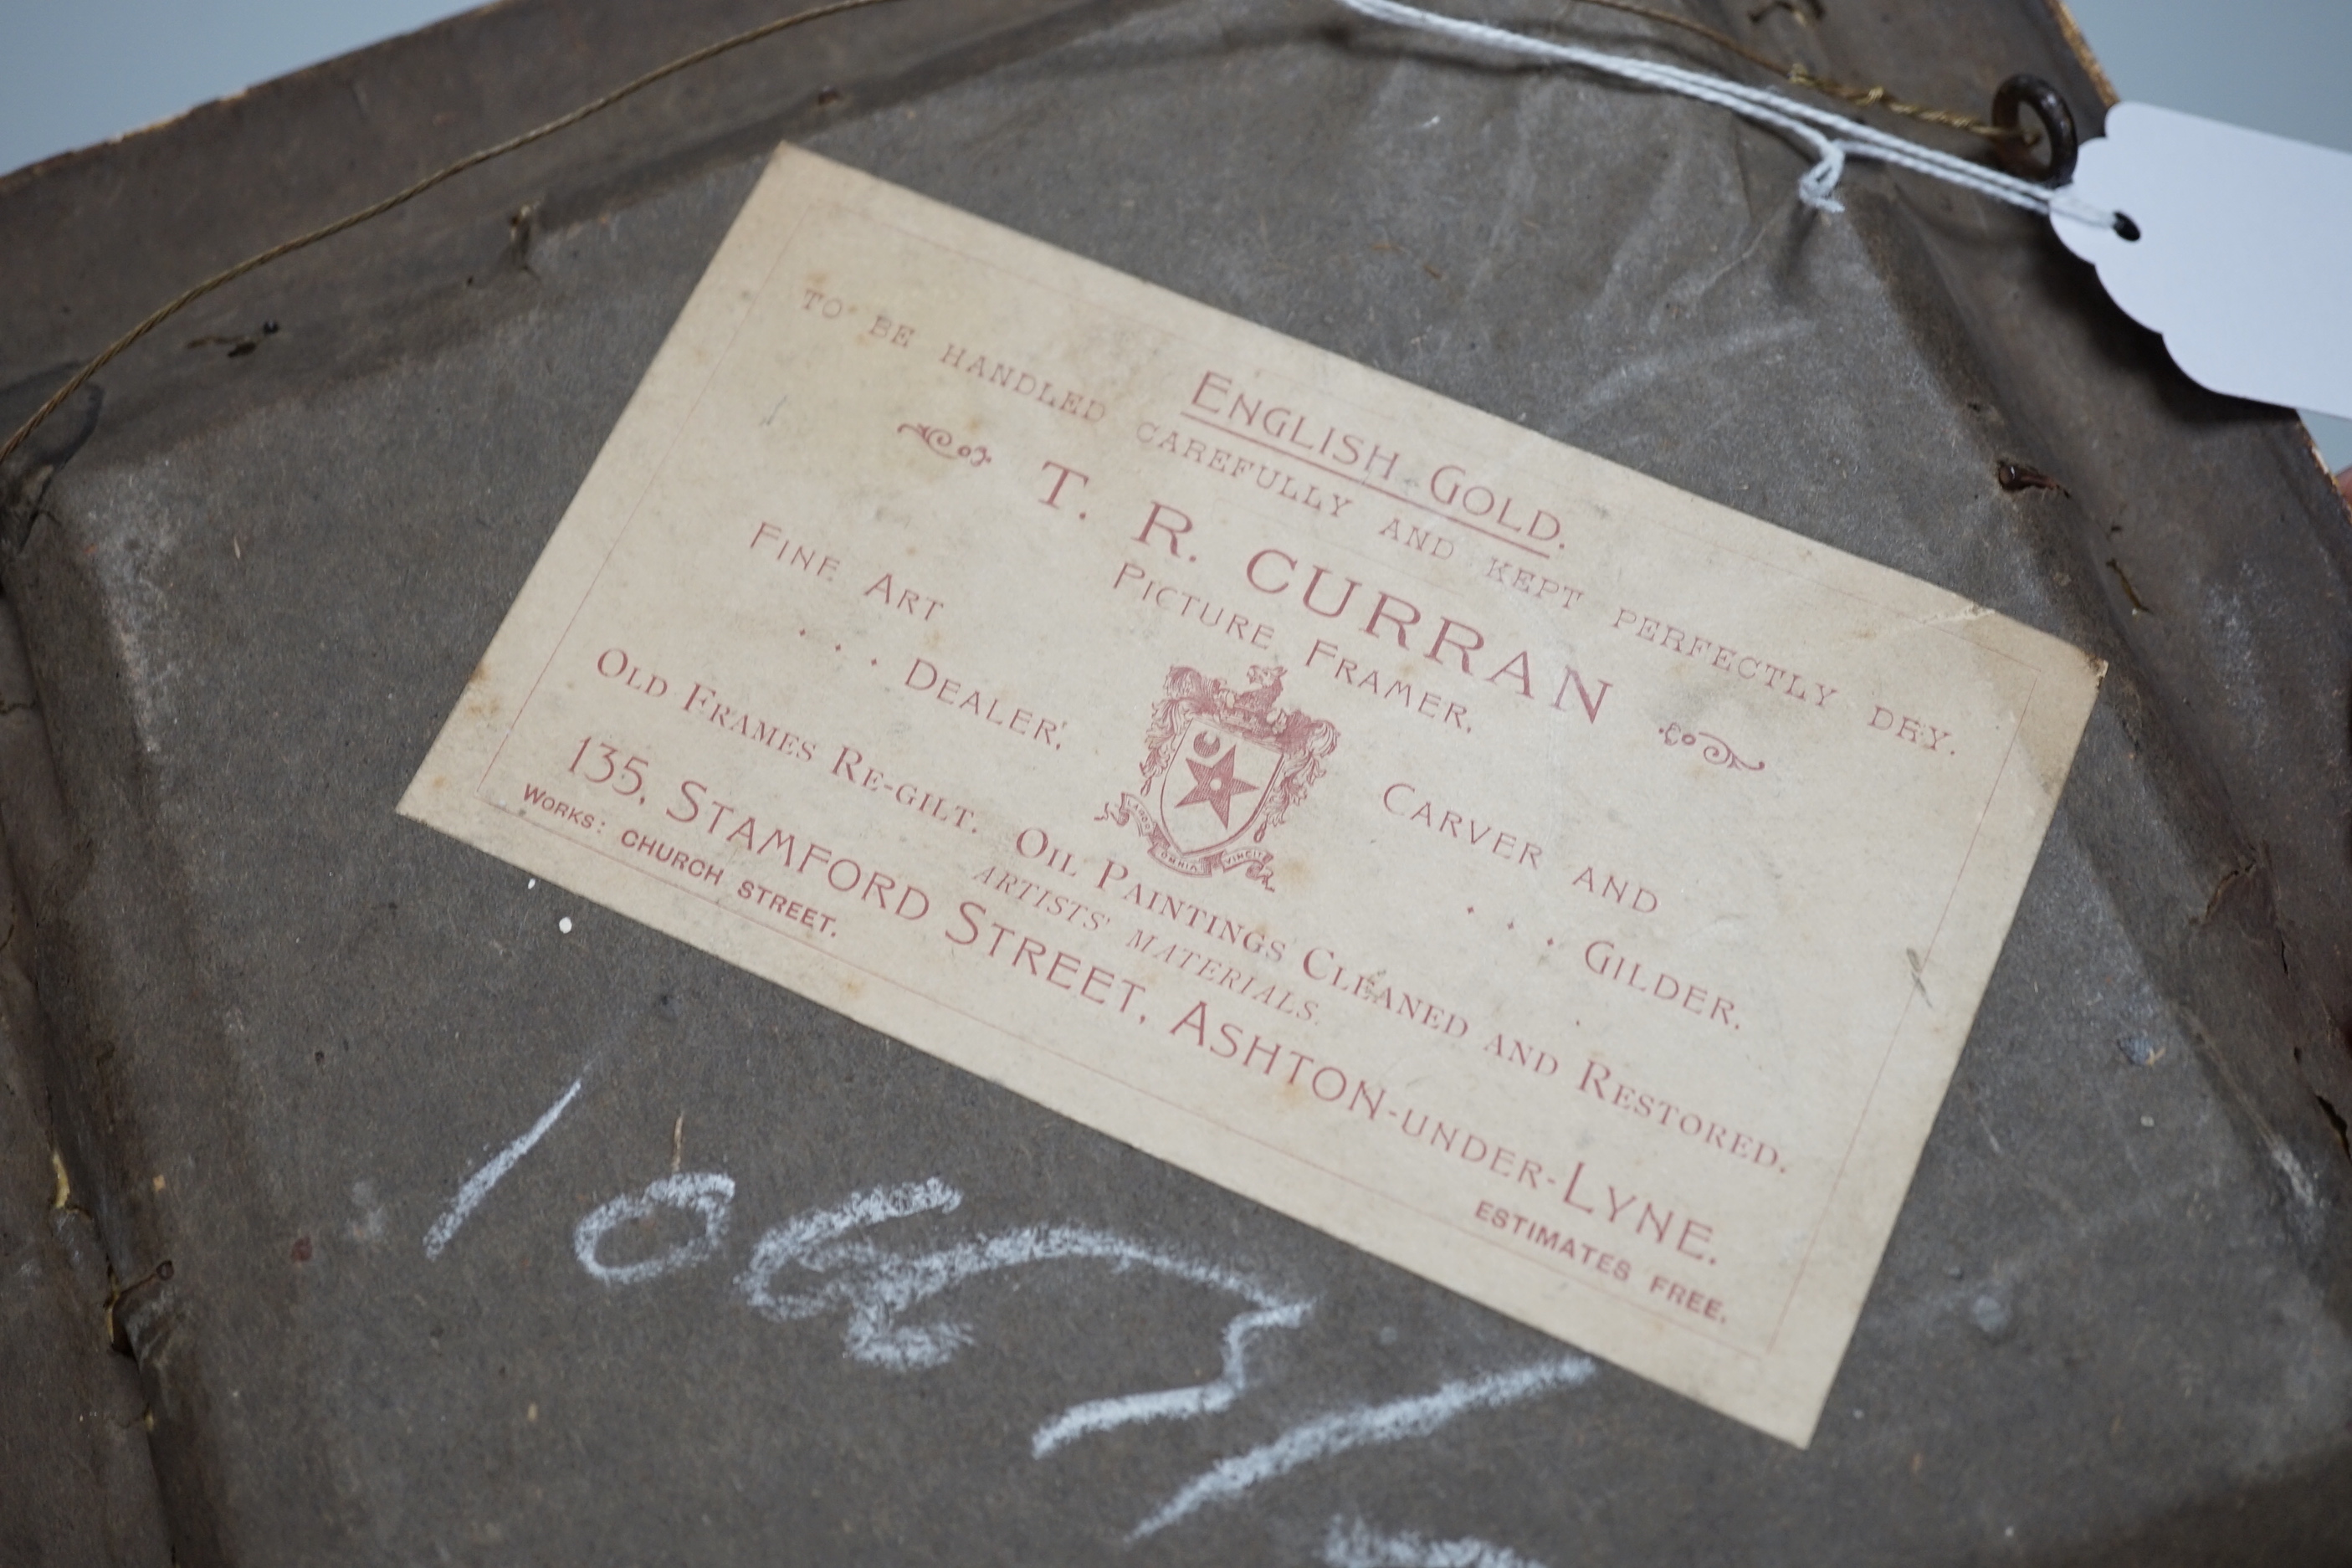 ENGLISH GOLD.
TO BE HANDLED CAREFULLY AND KEPT PERFECTLY DRY.
T. R. CURRAN
PICTURE FRAMER.
FINE ART
. . . DEALER.
CARVER AND
. . . GILDER.
LABOR OMNIA VINCIT
OLD FRAMES RE-GILT. OIL PAINTINGS CLEANED AND RESTORED.
ARTISTS' MATERIALS.
135, STAMFORD STREET, ASHTON-UNDER-LYNE.
WORKS: CHURCH STREET. ESTIMATES FREE.